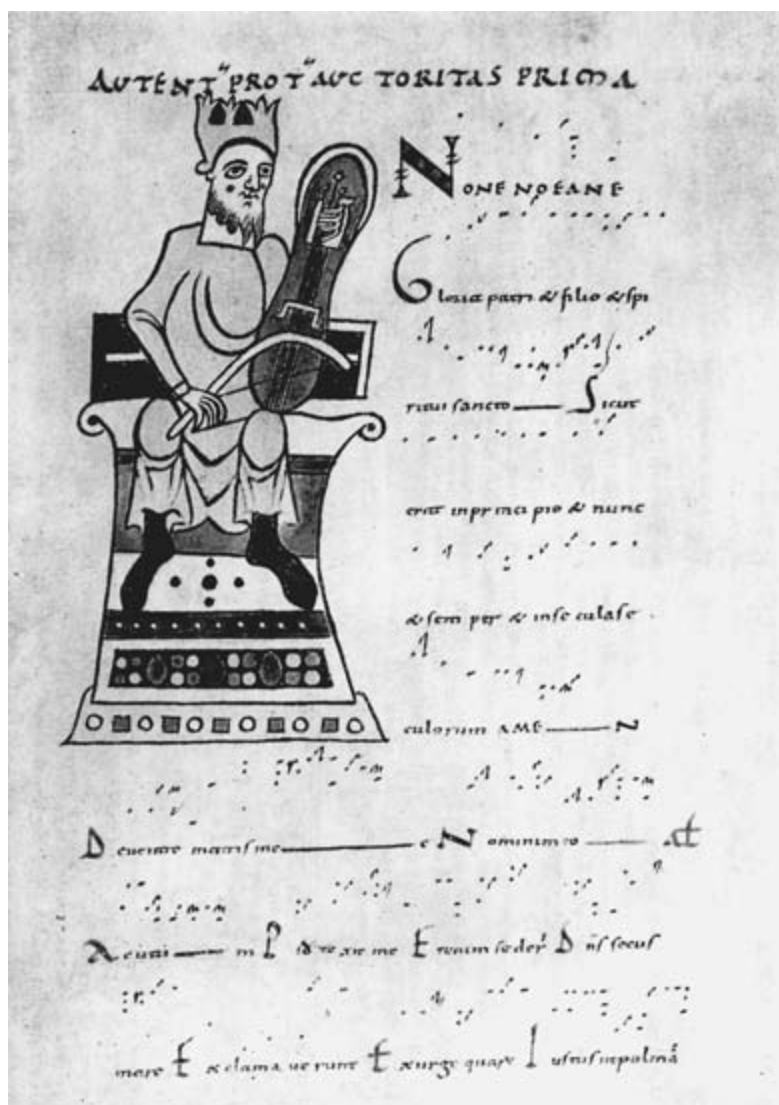 AUTENT PROT AUCTORITAS PRIMA
NONE NOEANE
Gloria patri & filio & spi
ritui sancto Sicut
erat inprinci pio & nunc
& sem per & inse culase
culorum AMEN
De uentre matris me e N omini meo
Et exclama uerunt Exurge quare Iustus utpalma